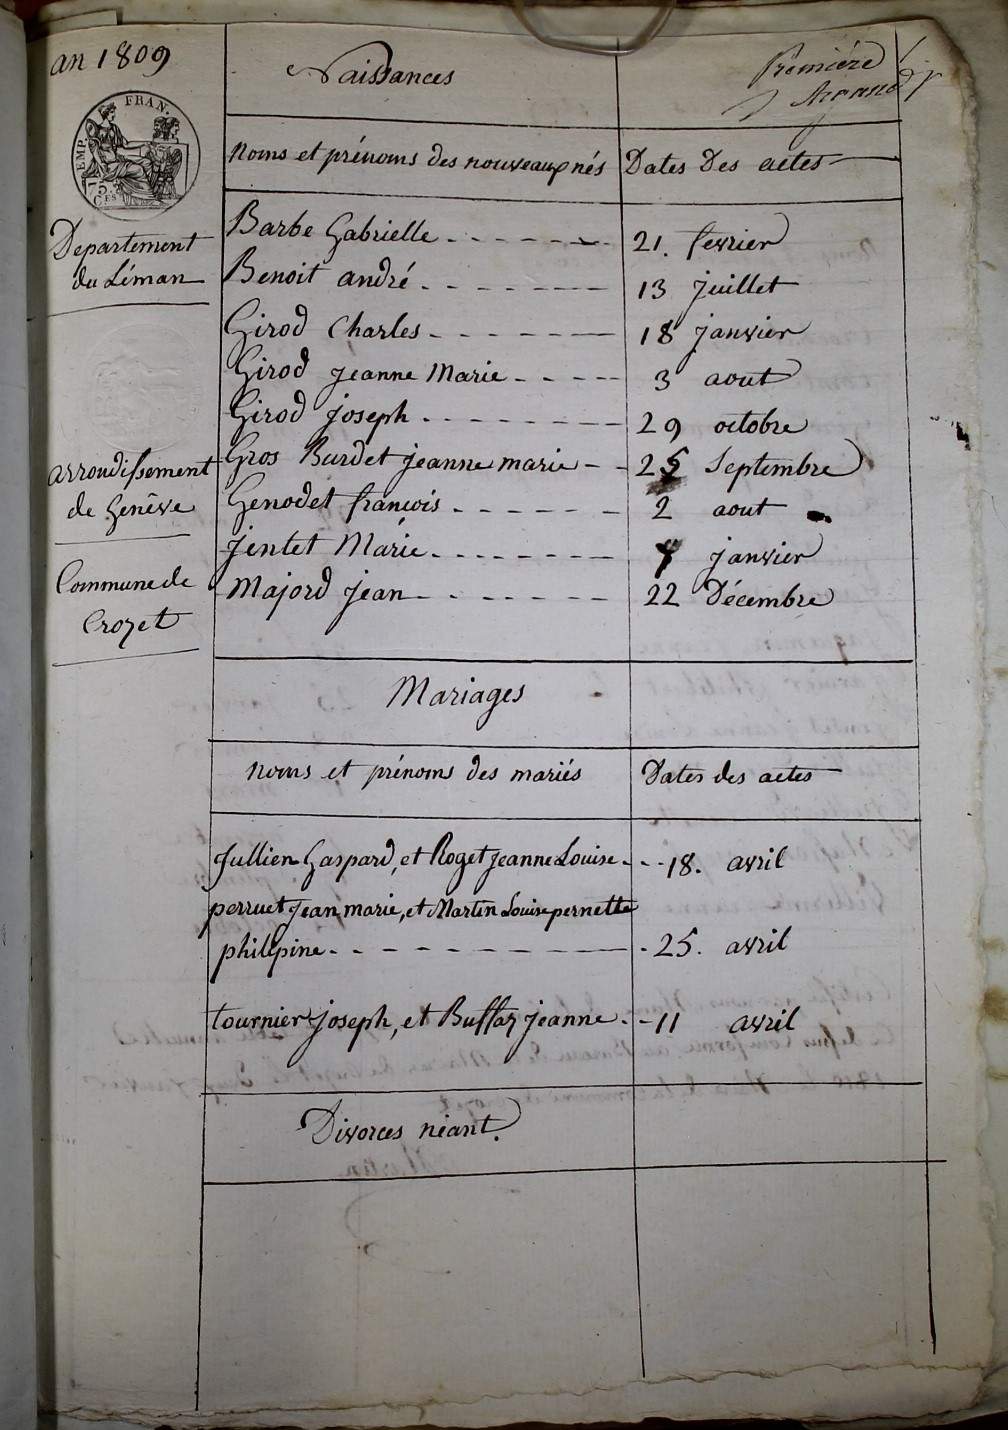 an 1809
Naissances
Premiére
EMP. FRAN.
75.
C.ES
noms et prénoms des nouveaux nés Dates Des actes
Departement
du Léman
Barbe Gabrielle - - - - - - - 21. fevrier
Benoit andré - - - - - - - 13 Juillet
Girod Charles - - - - - - - 18 janvier
Girod Jeanne Marie - - - - - 3 aout
Girod Joseph - - - - - - - 29 octobre
arrondissement
de Genêve
Gros Burdet Jeanne marie - - 25 Septembre
Genodet françois - - - - - - 2 aout
Jentet Marie - - - - - - - janvier
Commune de
Crozet
Majord Jean - - - - - - - 22 Décembre
Mariages
noms et prénoms des mariés Dates des actes
Jullien Gaspard, et Roget Jeanne Louise - - - 18. avril
perruet Jean marie, et Martin Louise pernette
philipine - - - - - - - - - 25. avril
tournier Joseph, et Buffaz Jeanne - - 11 avril
Divorces néant.